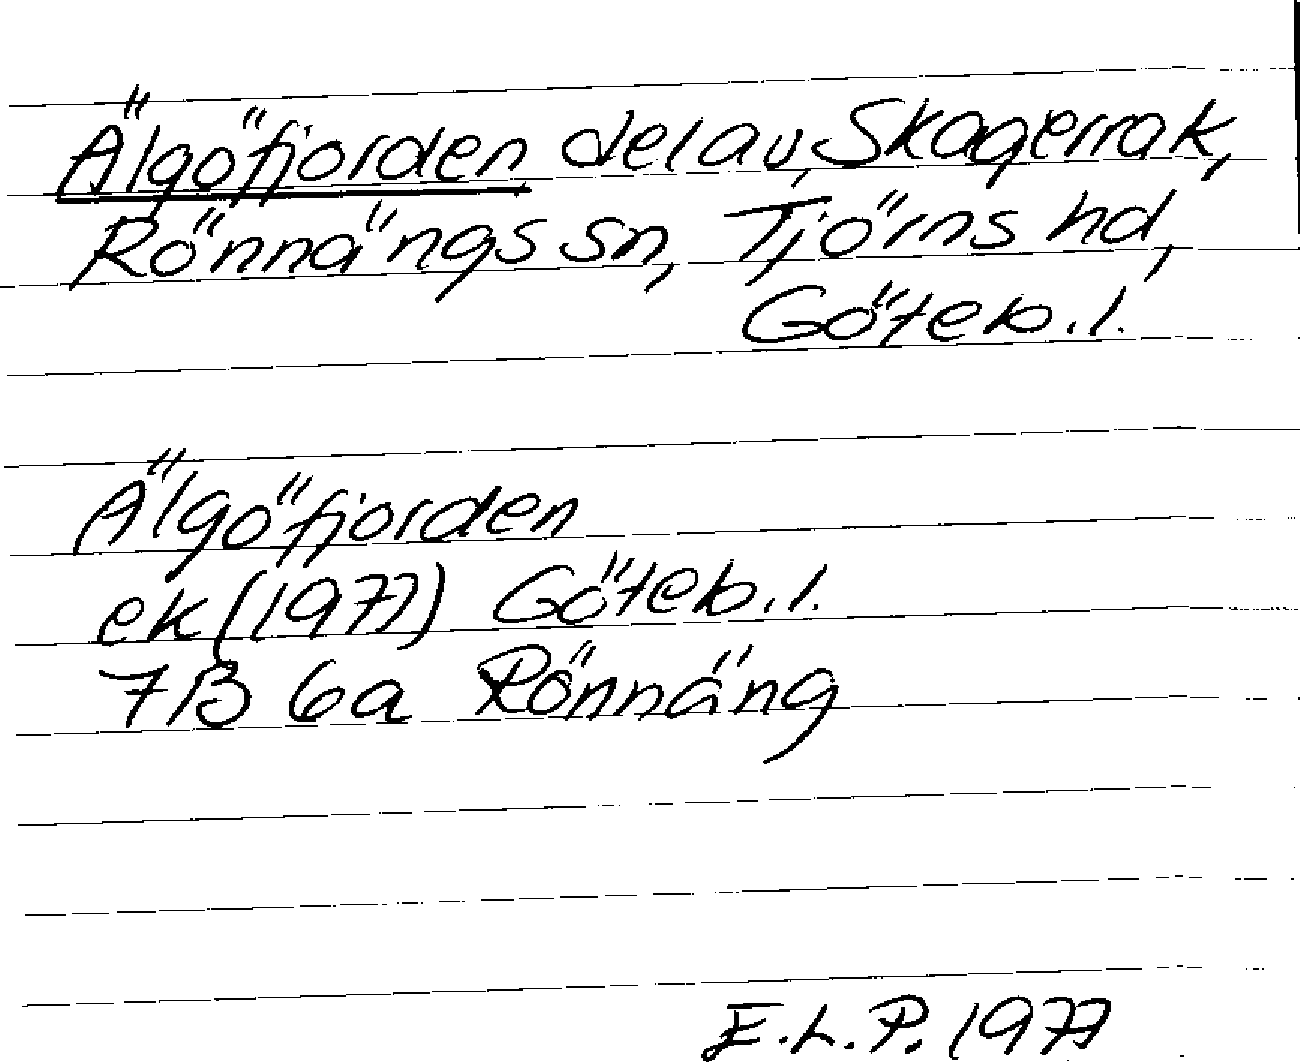 Älgöfjorden, del av Skagerrak,
Rönnängs sn, Tjörns hd,
Göteb.l.
Älgöfjorden
ek (1977) Göteb.l.
7B 6a Rönnäng
E.L.P. 1977